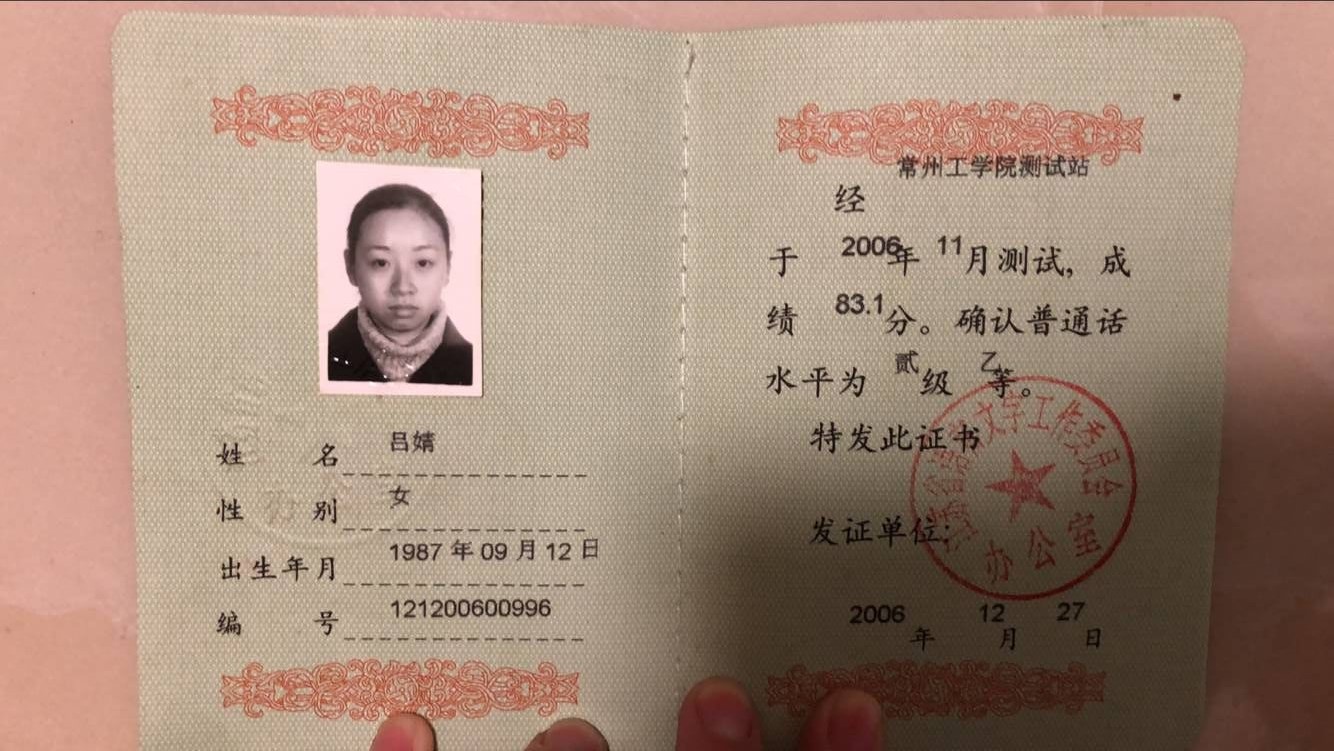 姓名 吕婧
性别 女
出生年月 1987年09月12日
编号 121200600996
常州工学院测试站
经
于 2006年 11月测试，成
绩 83.1分。确认普通话
水平为 贰级 乙等。
特发此证书
发证单位：
江苏省语言文字工作委员会
办公室
2006年 12月 27日